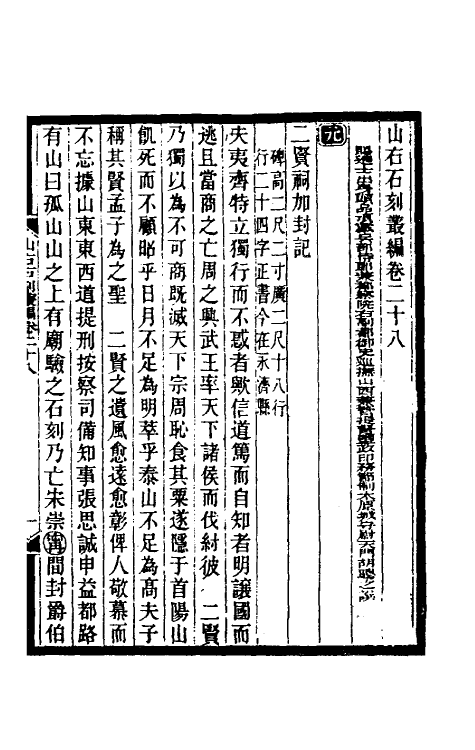 山右石刻叢編卷二十八
賜進士出身頭品頂戴兵部侍郎兼都察院右副都御史巡撫山西兼管提督鹽政印務節制太原城守尉天門胡聘之譔
元
二賢祠加封記
碑高二尺二寸廣二尺十八行
行二十四字正書今在永濟縣
夫夷齊特立獨行而不惑者歟信道篤而自知者明讓國而
逃且當商之亡周之興武王率天下諸侯而伐紂彼 二賢
乃獨以為不可商既滅天下宗周恥食其粟遂隱于首陽山
飢死而不顧昭乎日月不足為明萃乎泰山不足為高夫子
稱其賢孟子為之聖 二賢之遺風愈遠愈彰俾人敬慕而
不忘據山東東西道提刑按察司備知事張思誠申益都路
有山曰孤山山之上有廟驗之石刻乃亡宋崇寗間封爵伯
山右石刻叢編卷二十八
一